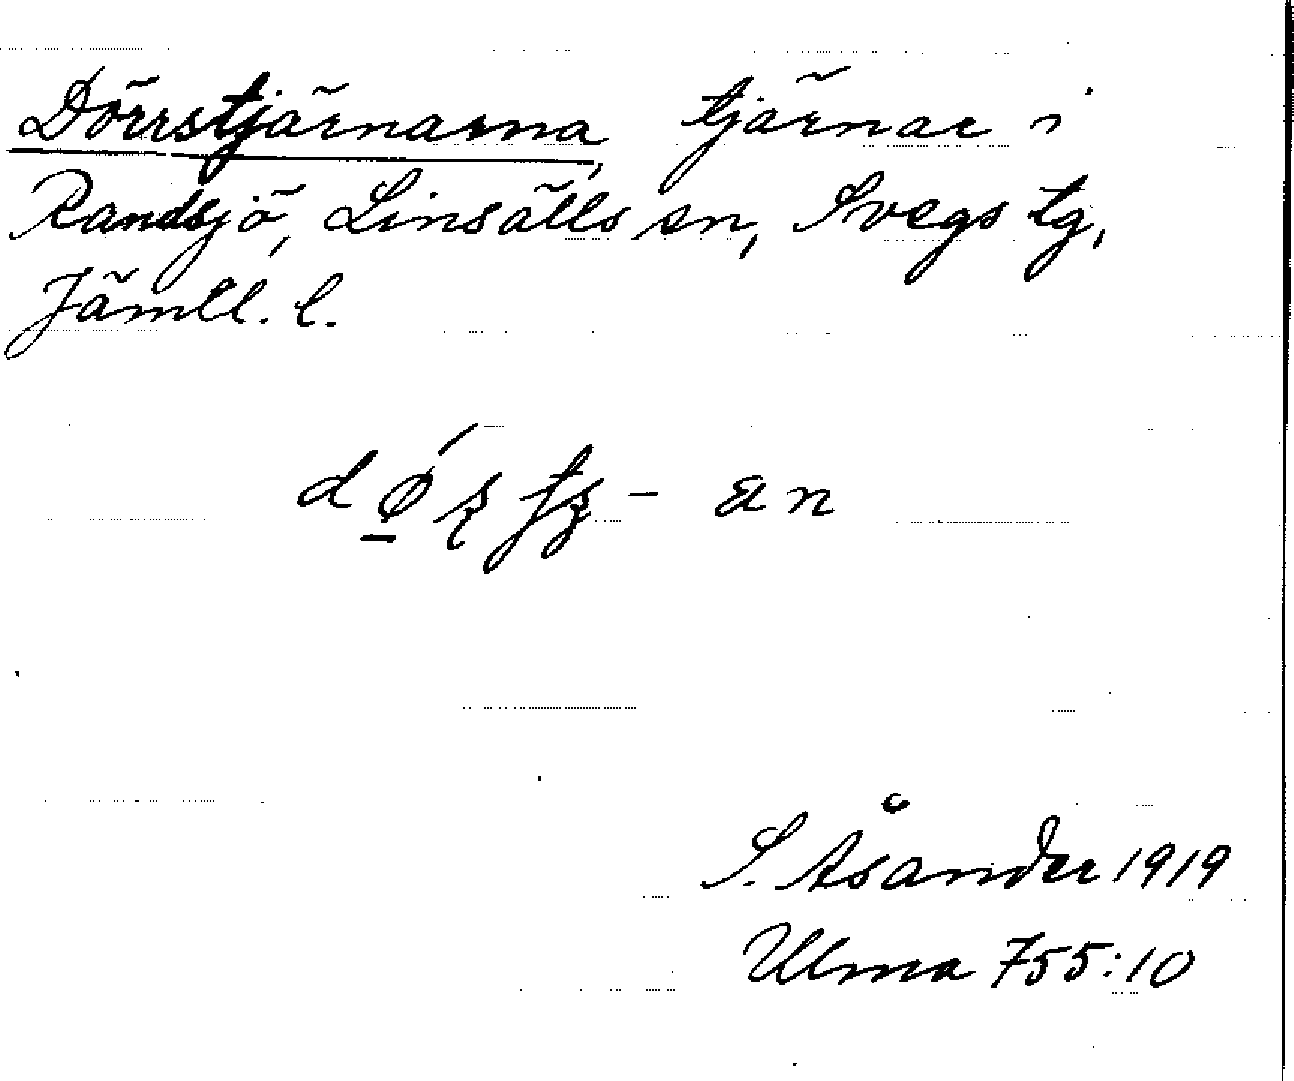 Dörrstjärnarna, tjärnar i
Randsjö, Linsälls sn, Svegs tg,
Jämtl. l.
S. Åsander 1919
Ulma 755:10